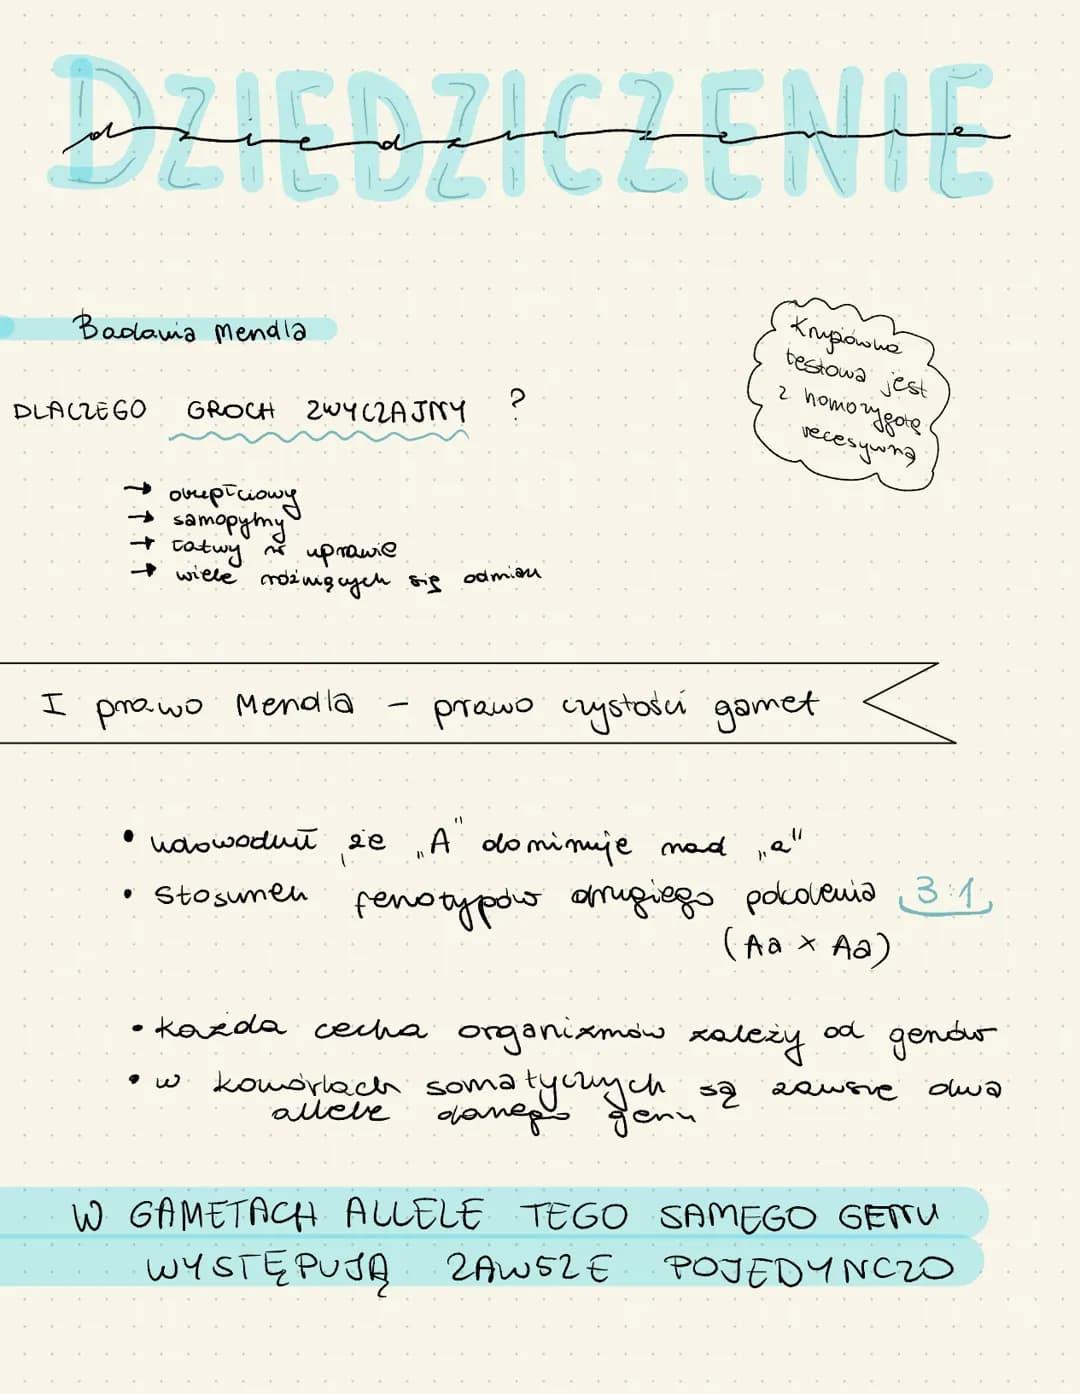 DZIEDZICZENIE
dziedziczenie
Badania Mendla
Krzyżówka
testowa jest
z homozygotą
recesywną
DLACZEGO GROCH ZWYCZAJNY ?
→ obupłciowy
→ samopylny
→ łatwy w uprawie
→ wiele różniących się odmian
I prawo Mendla - prawo czystości gamet
• udowodnił, że „A" dominuje nad „a"
• Stosunek fenotypów drugiego pokolenia 3:1
(Aa x Aa)
• każda cecha organizmów zależy od genów
• w komórkach somatycznych są zawsze dwa
allele danego genu
W GAMETACH ALLELE TEGO SAMEGO GENU
WYSTĘPUJĄ ZAWSZE POJEDYNCZO